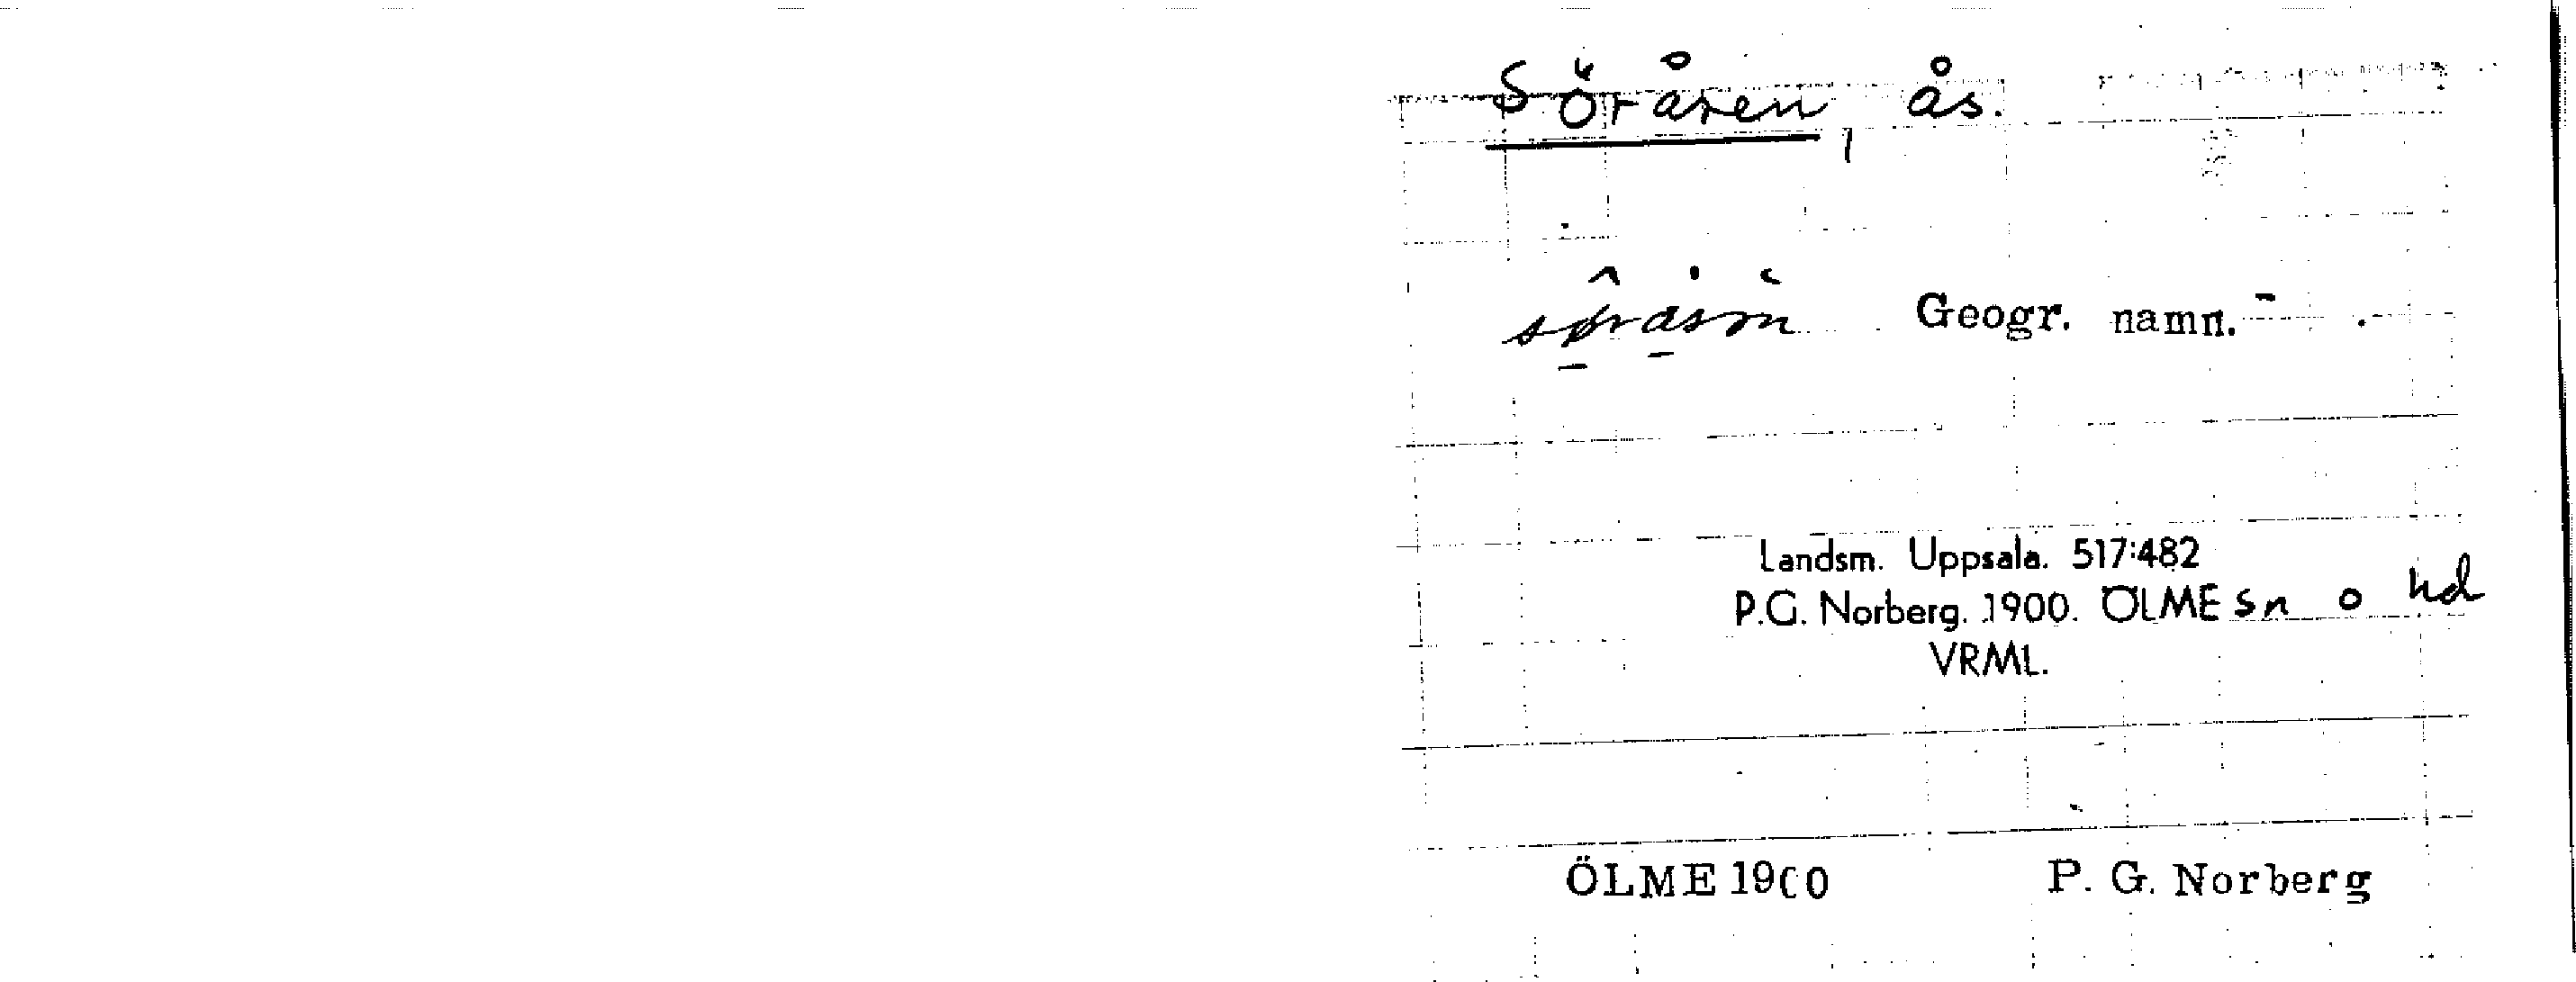 Söråsen, ås.
Geogr. namn.
Landsm. Uppsala. 517:482
P.G. Norberg. 1900. ÖLME sn o hd
VRML.
ÖLME 1900 P. G. Norberg